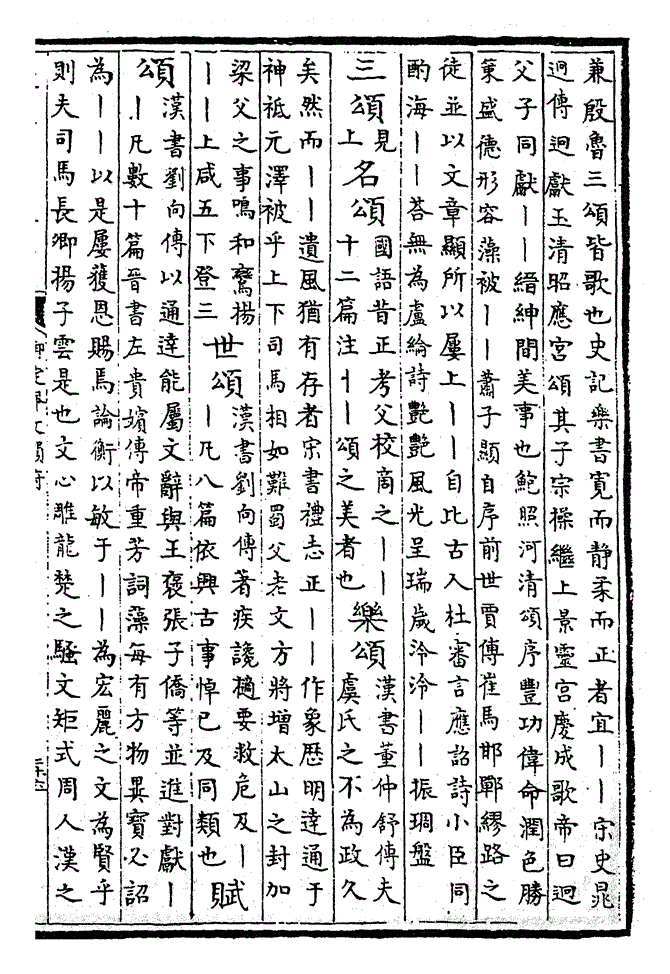 兼殷魯三頌皆歌也史記樂書寛而静柔而正者宜丨丨宗史晁
迥傳迥獻玉清昭應宮頌其子宗操繼上景靈宮慶成歌帝曰迥
父子同獻丨丨縉紳間美事也鮑照河清頌序豐功偉命潤色勝
策盛德形容藻被丨丨蕭子顯自序前世賈傅崔馬邯鄲繆路之
徒並以文章顯所以屢上丨丨自比古人杜審言應詔詩小臣同
酌海丨丨荅無為盧綸詩艷艷風光呈瑞歲泠泠丨丨振琱盤
三頌
見
上
名頌
國語昔正考父校商之丨丨
十二篇注丨丨頌之美者也
樂頌
漢書董仲舒傳夫
虞氏之不為政久
矣然而丨丨遺風猶有存者宋書禮志正丨丨作象歴明達通于
神祗元澤被乎上下司馬相如難蜀父老文方將增太山之封加
梁父之事鳴和鸞揚
丨丨上咸五下登三
世頌
漢書劉向傳著疾讒擿要救危及丨
丨凡八篇依興古事悼已及同類也
賦
頌
漢書劉向傳以通達能屬文辭與王褒張子僑等並進對獻丨
丨凡數十篇晉書左貴嬪傳帝重芳詞藻每有方物異寳必詔
為丨丨以是屢獲恩賜焉論衡以敏于丨丨為宏麗之文為賢乎
則夫司馬長卿揚子雲是也文心雕龍楚之騷文矩式周人漢之